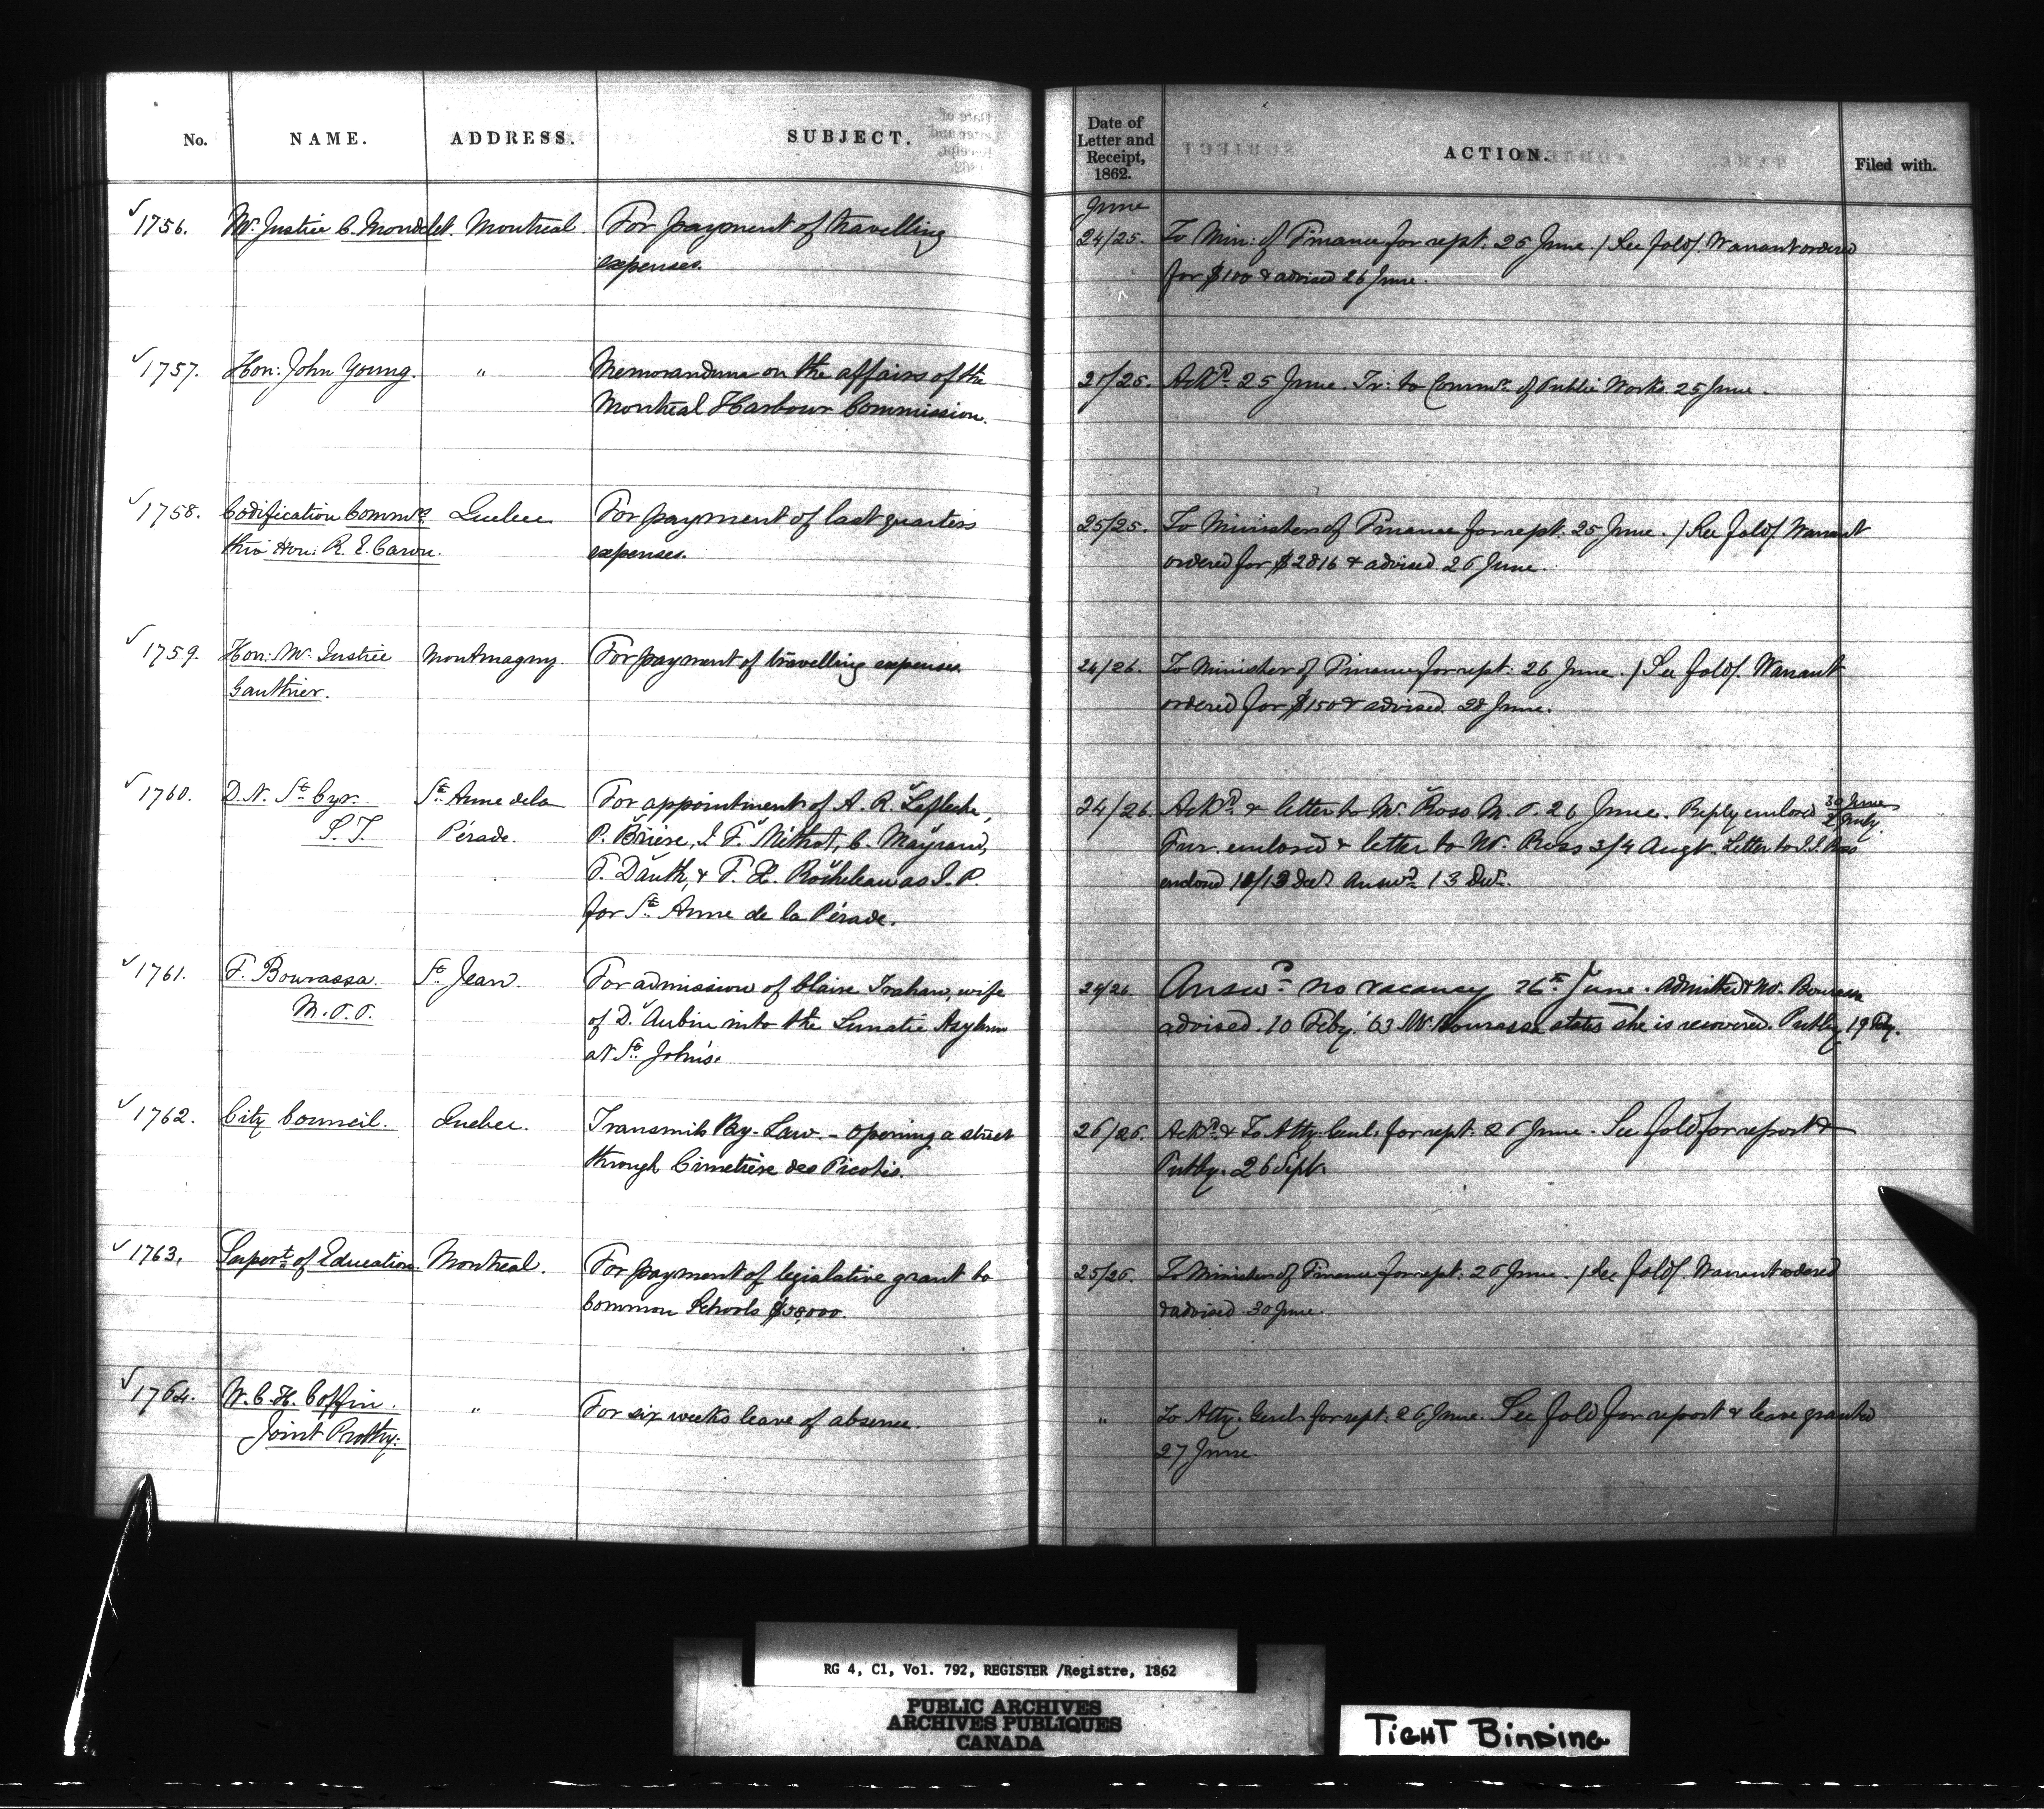 No. NAME. ADDRESS. SUBJECT. Date of Letter and Receipt, 1862. ACTION. Filed with.
June
1756. Mr. Justice C. Mondelet. Montreal. For payment of travelling 24/25. To Min: of Finance for rept. 25 June. / See fold/. Warrant ordered
expenses. for $100 & advised 26 June.
1757. Hon: John Young. " Memorandum on the affairs of the 21/25. Ackd. 25 June. Tr: to Commr. of Public Works 25 June.
Montreal Harbour Commission.
1758. Codification Commrs. Quebec For payment of last quarter's 25/25. To Minister of Finance for rept. 25 June. / See fold/. Warrant
thro' Hon: R. E. Caron. expenses. ordered for $2816 & advised 26 June.
1759. Hon: Mr. Justice Montmagny. For payment of travelling expenses. 24/26. To Minister of Finance for rept: 26 June. / See fold/. Warrant
Gauthier. ordered for $150 & advised 28 June.
1760. D. N. St. Cyr. St. Anne de la For appointment of A. R. Lafleche, 24/26. Ackd. & letter to Mr. Ross M.P. 26 June. Reply enclosed 30 June
2 July.
P.S. Pérade. P. Brière, J. F. Mithot, C. Mayrand, Fur. enclosed & letter to Mr. Ross 3/4 Augt. Letter to J. J. Ross
F. Dauth, & F. X. Rocheleau as J. P. enclosed 12/13 Dec. Answd. 13 Dec.
for St. Anne de la Pérade.
1761. F. Bourassa. St. Jean. For admission of Claire Trahan, wife 24/26 Answd. no vacancy 26th June. Admitted & Mr. Bourassa
M.P.P. of D. Aubin into the Lunatic Asylum advised. 10 Feby. '63 Mr. Bourassa states she is recovered. Putby. 19 Feby.
at St. John's.
1762. City Council. Quebec. Transmits By-Law. - opening a street 26/26. Ackd. & To Atty. Genl. for rept. 26 June. See fold for report &
through Cimetière des Picotés. Putby. 26 Sept.
1763. Supert. of Education Montreal. For payment of legislative grant to 25/26. To Minister of Finance for rept: 26 June. / See fold/. Warrant ordered
Common Schools $58,000. & advised 30 June.
1764. W. C. H. Coffin. " For six weeks leave of absence. " To Atty. Genl. for rept. 26 June. See fold for report & leave granted
Joint Prothy: 27 June.
RG 4, C1, Vol. 792, REGISTER /Registre, 1862
PUBLIC ARCHIVES
ARCHIVES PUBLIQUES
CANADA
TIGHT BINDING